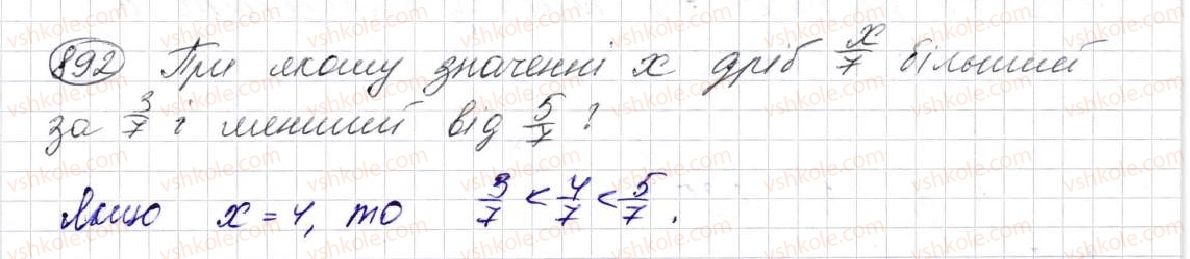 892 При якому значенні x дріб x/7 більший
за 3/7 і менший від 5/7?
Якщо x = 4, то 3/7 < 4/7 < 5/7.